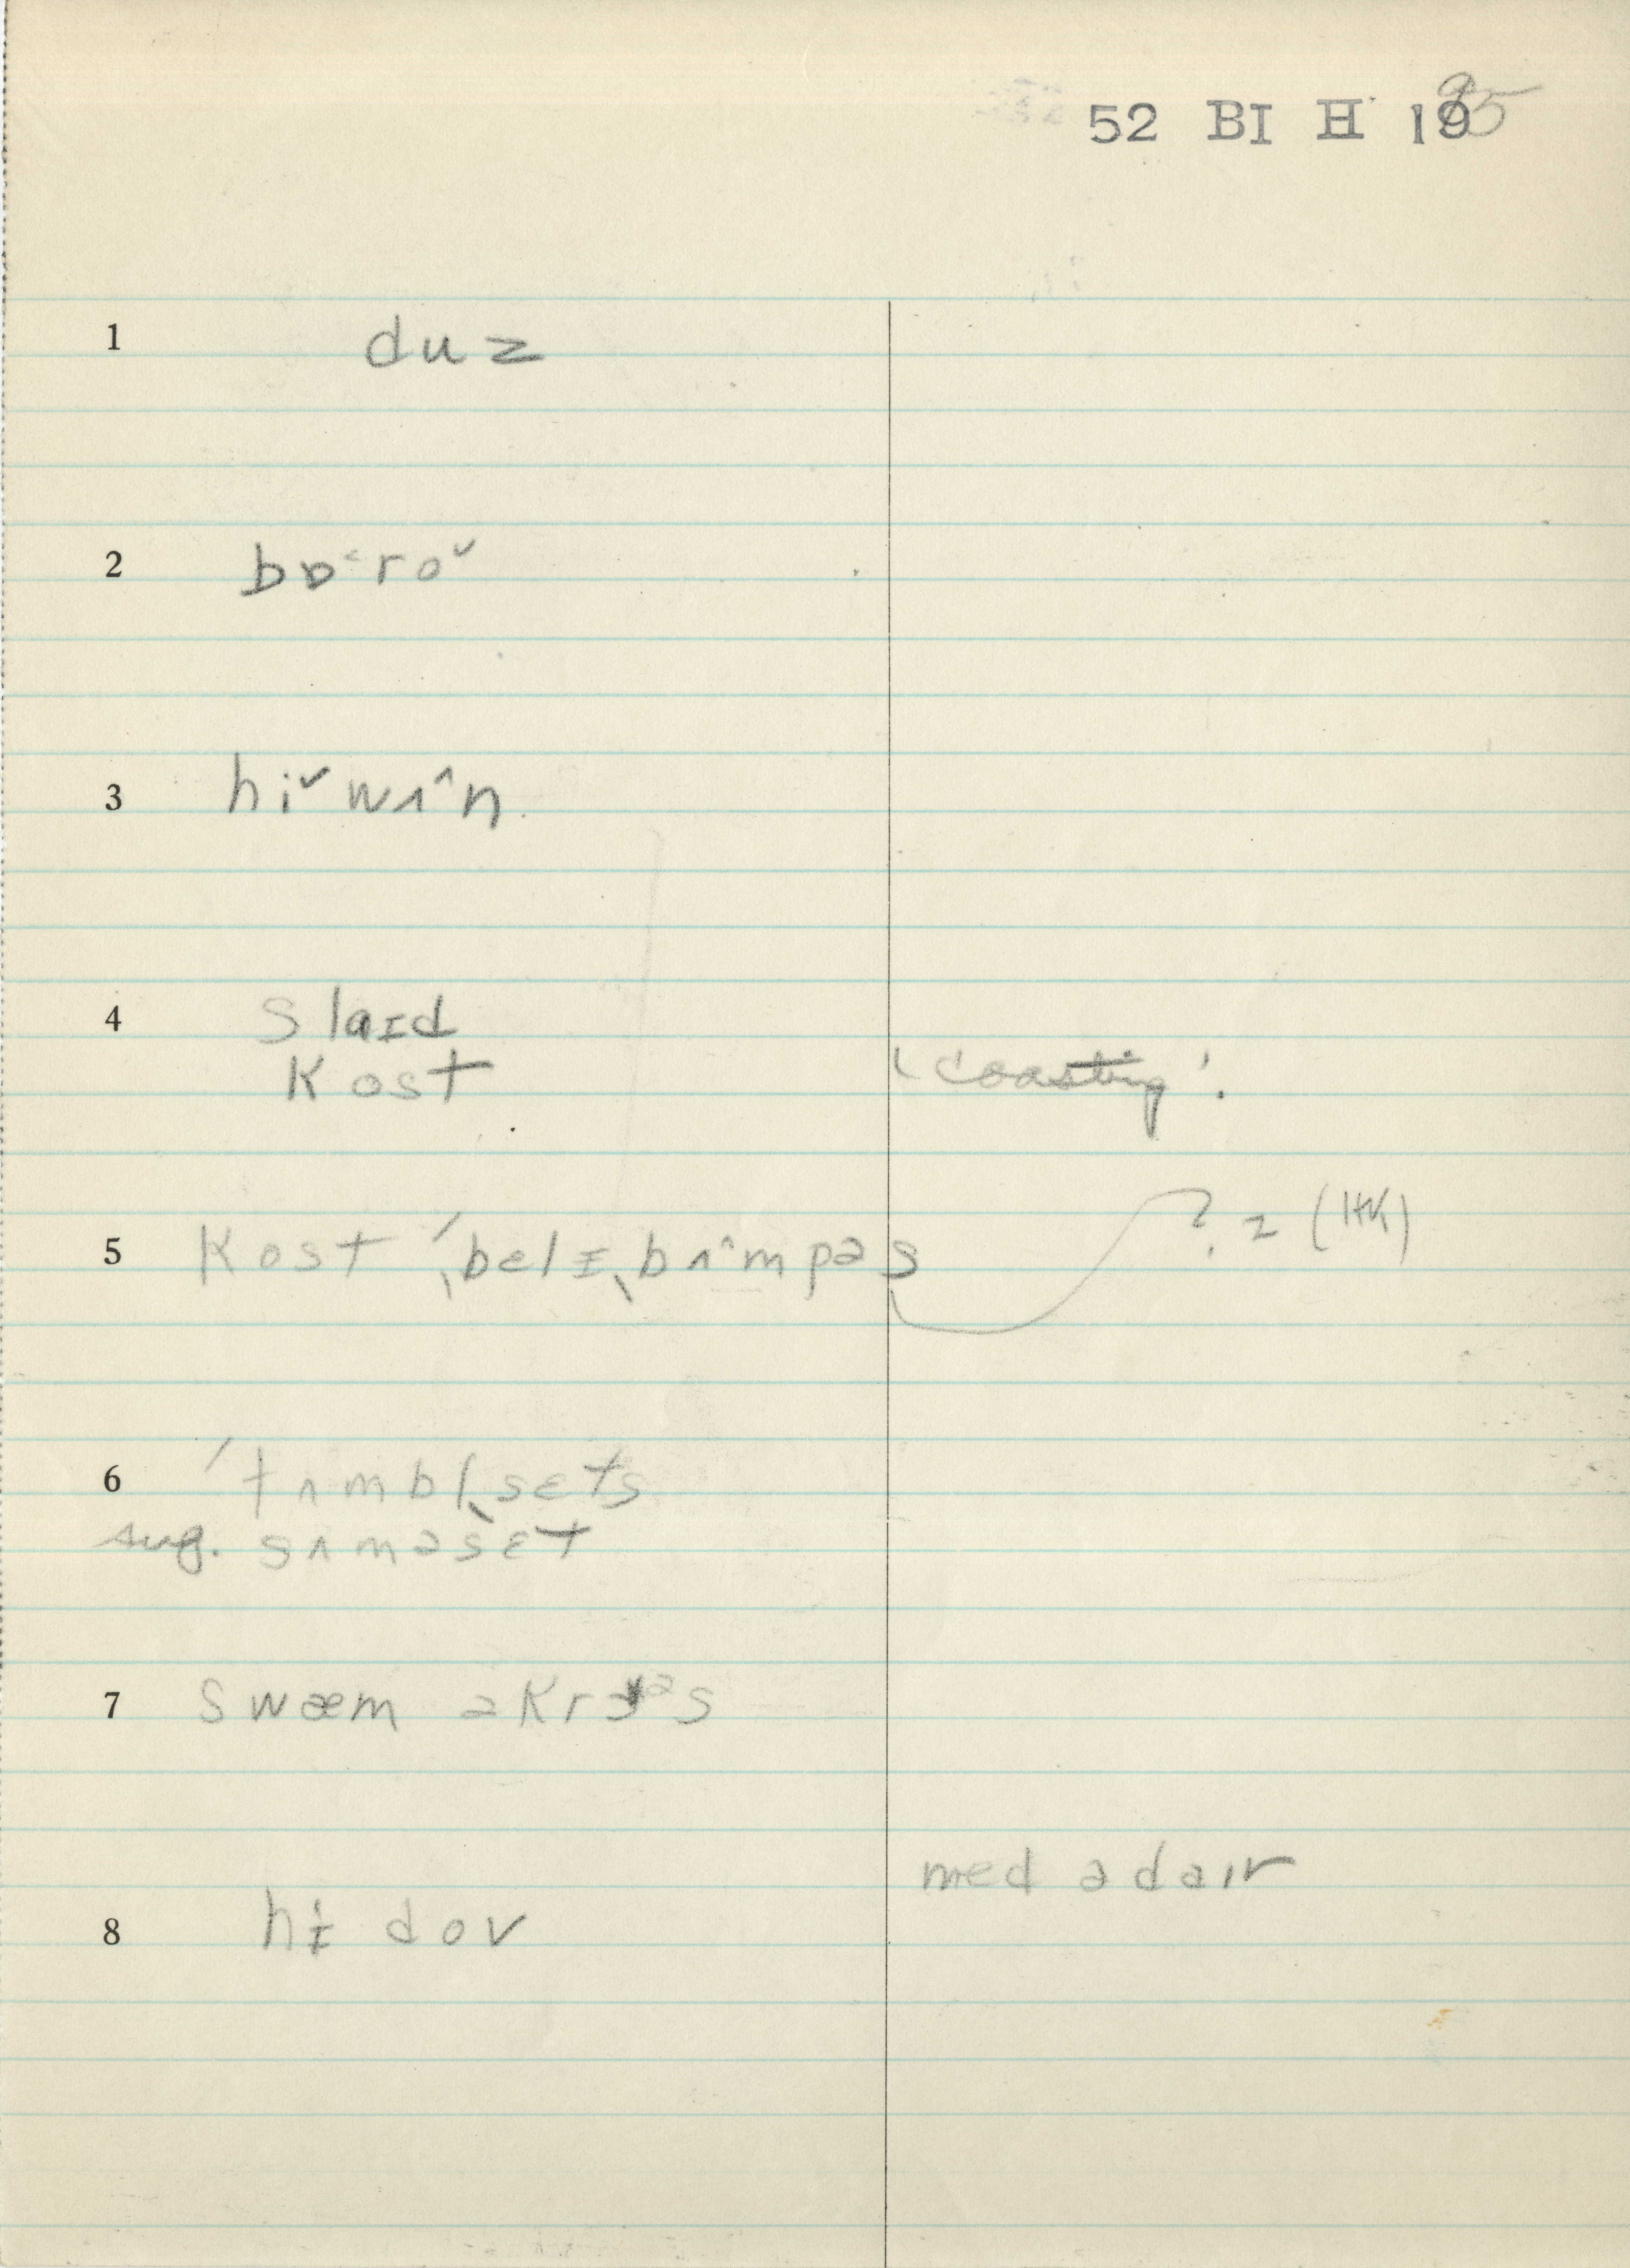 52 BI H 19 95
1 duz
2 bɒ˂ro˅
3 hi˅ wʌ^n.
4 slaɪd
kost
'coasting'.
5 kost ˈˌbelɪˌbʌ^mpəs ? z (HK)
6 ˈtʌmbl̩ˌsɛts
sug. sʌməsɛt
7 swæm əkrɔəs
med ə daɪv
8 hɨ dov